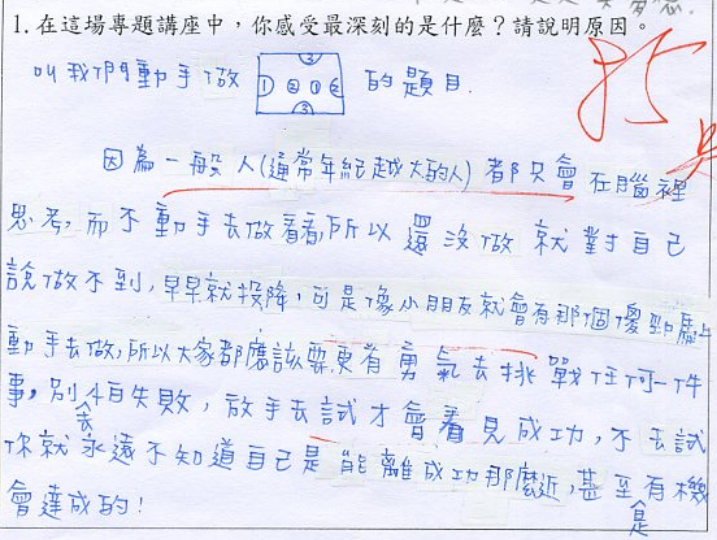 1. 在這場專題講座中，你感受最深刻的是什麼？請說明原因。
叫我們動手做 的題目.
因為一般人(通常年紀越大的人)都只會在腦裡
思考，而不動手去做看看，所以還沒做就對自己
說做不到，早早就投降，可是像小朋友就會有那個傻勁馬上
動手去做，所以大家都應該要更有勇氣去挑戰任何一件
事，別怕失敗，放手去試才會看見成功，不去試
你就會永遠不知道自己是能離成功那麼近，甚至是有機
會達成的！
85